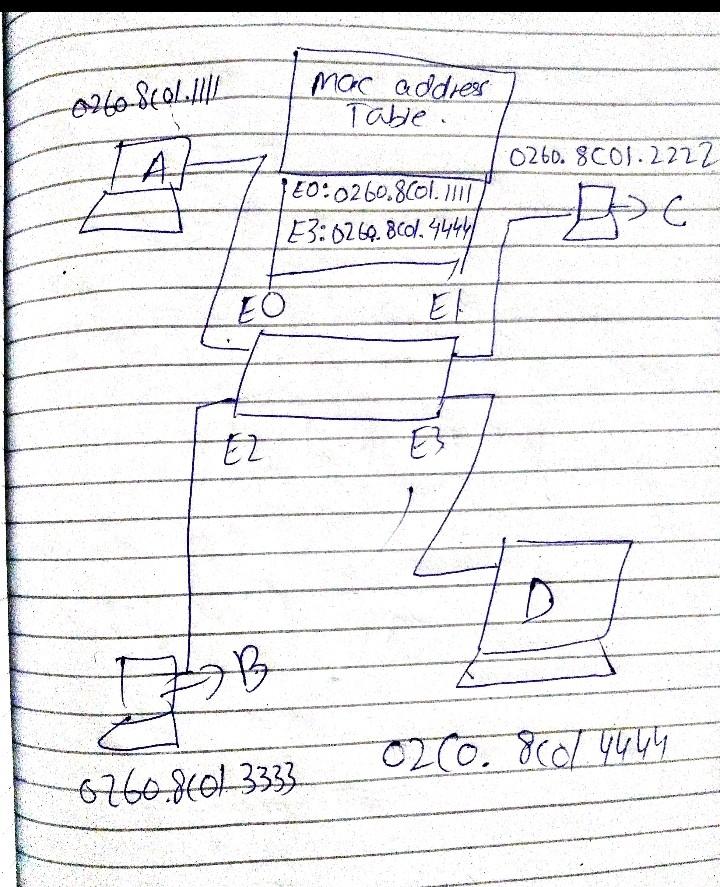 0260.8C01.1111
Mac address
Table.
A
0260.8C01.2222
E0:0260.8C01.1111
C
E3:0260.8C01.4444
E0
E1
E2
E3
D
B
02C0.8C01 4444
0260.8C01 3333